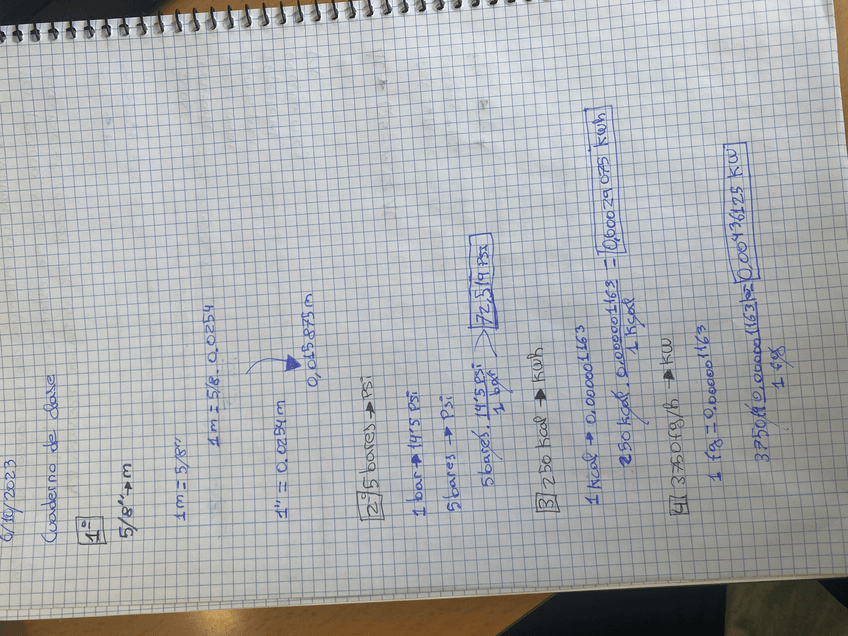 6/10/2023
Cuaderno de clase
1º
5/8" → m
1m = 5/8"
1m = 5/8 . 0,0254
1" = 0,0254m
0,015875m
2º 5 bares → PSI
1 bar → 14'5 PSI
5 bares → PSI
5 bares . 14'5 PSI
1 bar
72,519 PSI
3 250 Kcal → KWh
1 Kcal → 0,000001163
250 Kcal . 0,000001163 = 0,00029075 KWh
1 Kcal
4 3750 fg/h → KW
1 fg = 0,000001163
3750 . 0,000001163 = 0,00436125 KW
1 fg